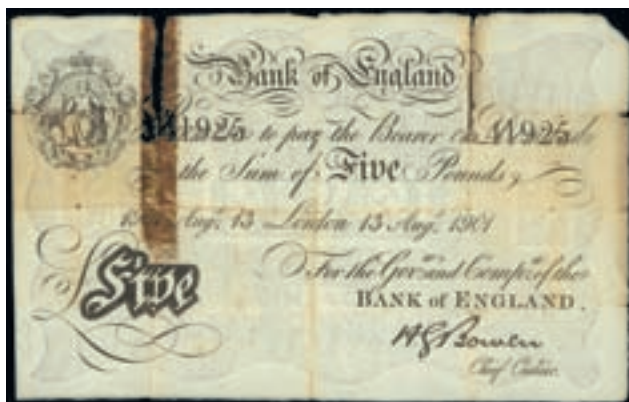 Bank of England
925 to pay the Bearer on 925
the Sum of Five Pounds
Augt. 13 London 13 Augt. 1901
Five
For the Govr. and Compa. of the
BANK of ENGLAND.
H G Bowen
Chief Cashier.